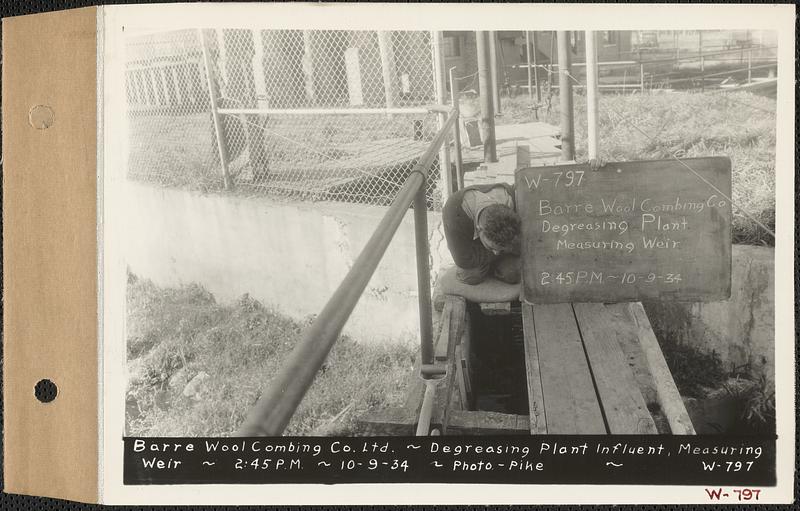 W-797
Barre Wool Combing Co
Degreasing Plant
Measuring Weir
2:45 P.M. ~ 10-9-34
Barre Wool Combing Co. Ltd. ~ Degreasing Plant Influent, Measuring
Weir ~ 2:45 P.M. ~ 10-9-34 ~ Photo.-Pike ~ W-797
W-797